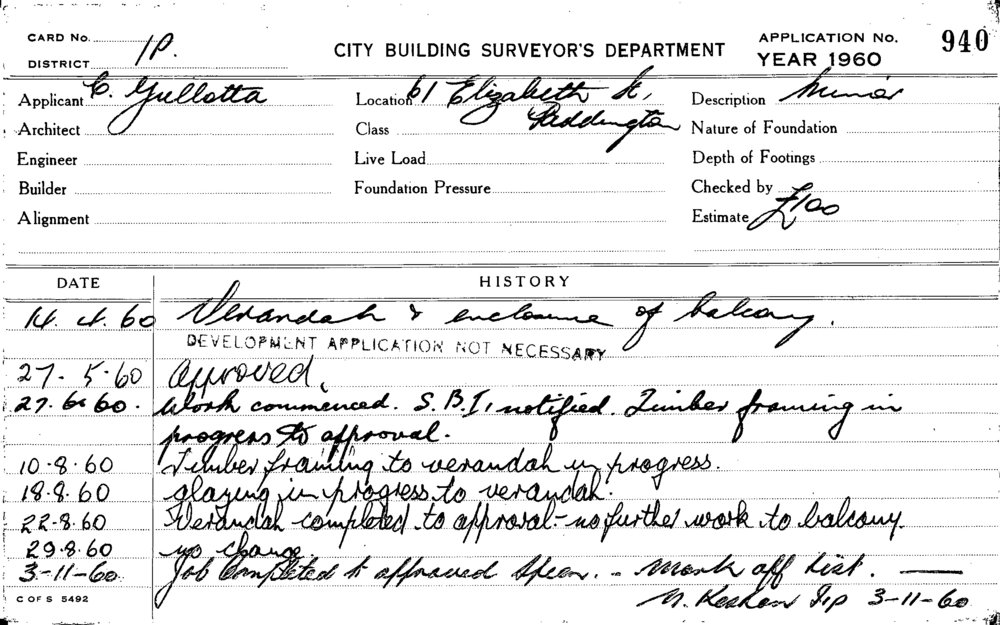 CARD No. 1P.
DISTRICT
CITY BUILDING SURVEYOR'S DEPARTMENT
APPLICATION No. 940
YEAR 1960
Applicant C. Gullotta
Location 61 Elizabeth St,
Paddington
Description Minor
Architect
Class
Nature of Foundation
Engineer
Live Load
Depth of Footings
Builder
Foundation Pressure
Checked by
Alignment
Estimate £100
DATE HISTORY
14. 4. 60 Verandah & enclosure of balcony.
DEVELOPMENT APPLICATION NOT NECESSARY
27. 5. 60 Approved.
27. 6. 60. Work commenced. S.B.I. notified. Timber framing in
progress to approval.
10.8.60 Timber framing to verandah in progress.
18.8.60 glazing in progress to verandah.
22.8.60 Verandah completed to approval - no further work to balcony.
29.8.60 no change.
3-11-60 Job Completed to approved Specn. - Mark off List.
3-11-60
C OF S 5492